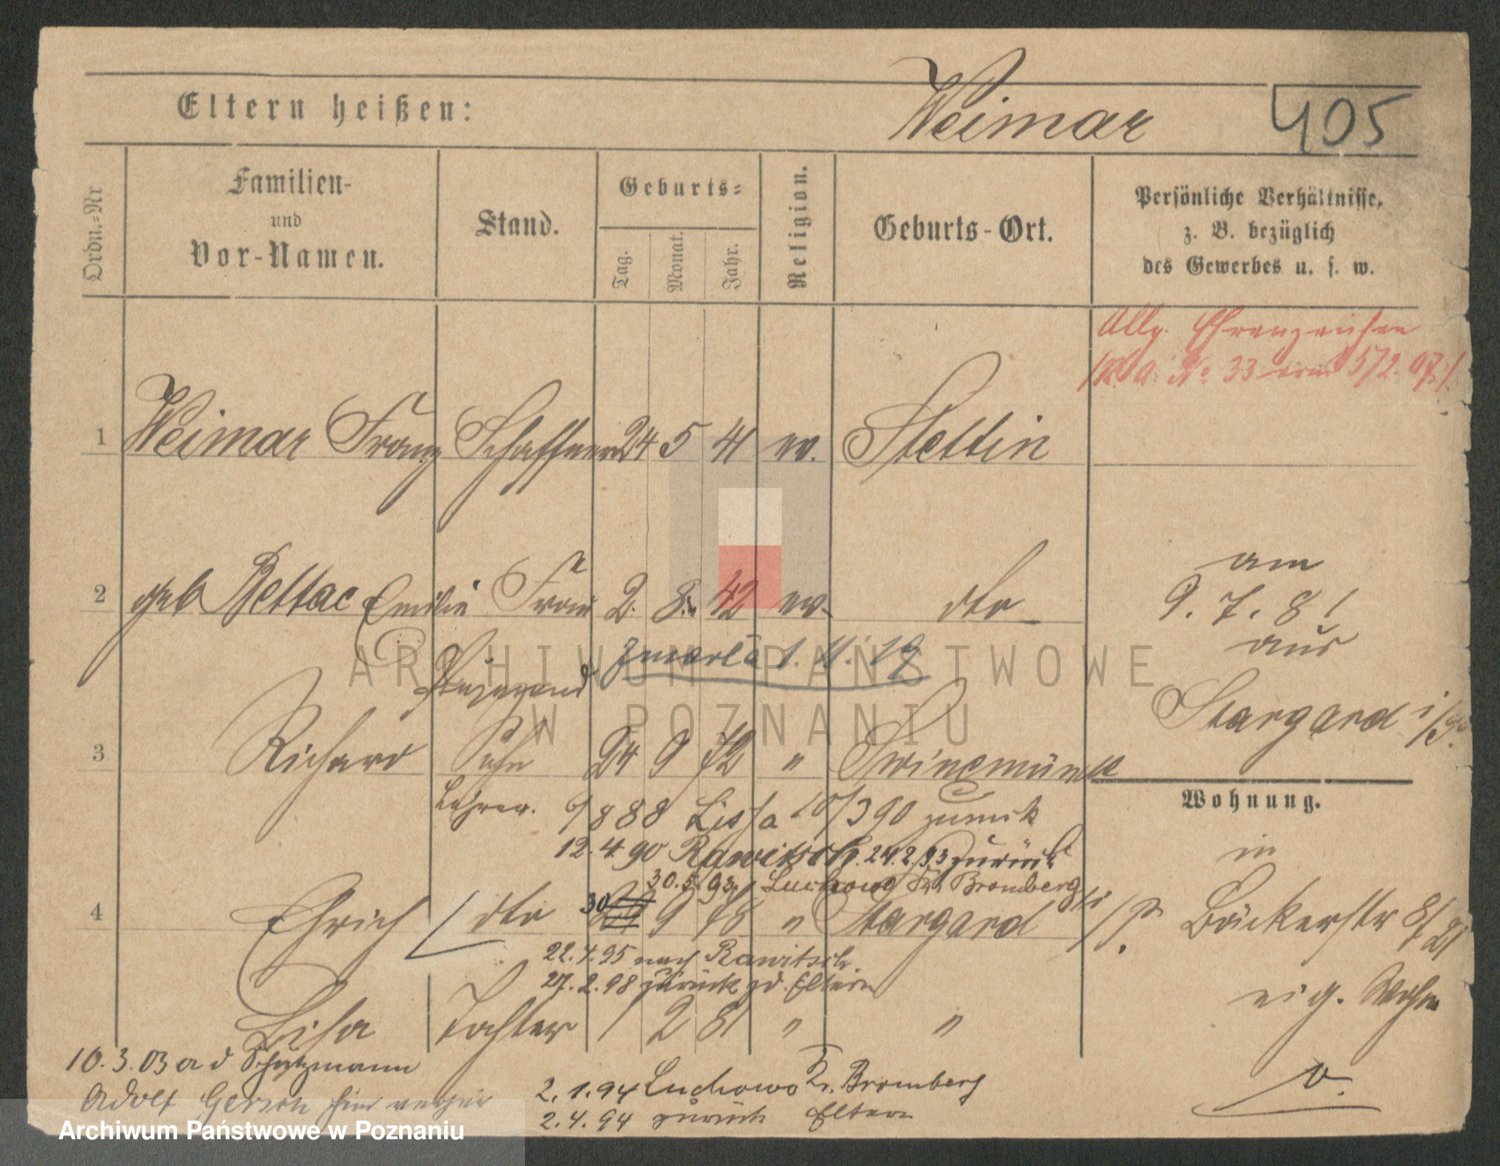 Eltern heißen:
Weimar
405
Ordn.-Nr
Familien-
und
Vor-Namen.
Stand.
Geburts-
Tag.
Monat.
Jahr.
Religion.
Geburts-Ort.
Persönliche Verhältnisse,
z. B. bezüglich
des Gewerbes u. s. w.
Allg. Ehrenzeichen
No 33
1 Weimar Franz Schaffner 24 5 41 ev. Stettin
2 geb Bettac Emilie Frau 2. 8. 42 ev. dto
am
9. 7. 81
aus
Stargard i/P.
zmarła 1. 4. 19
3 Richard Sohn 24 9 72 " Swinemünde
Lehrer. 9/8 88 Lissa 10/3 90 zurück
12.4.90 Rawitsch. 24.2.93 zurück
30.5.93. Luchowo Kr. Bromberg
4 Ehrich dto 30 9 78 " Stargard i/P.
22.4.95 nach Rawitsch
27.2.98 zurück zd. Eltern
Lisa Tochter 1 2 81 " "
Wohnung.
in
Bäckerstr 8/21
eig. Wohn
10.3.03 a d Schutzmann
Adolf Gerson hier
2.1.94 Luchowo Kr. Bromberg
2.4.94 zurück Eltern
ARCHIWUM PAŃSTWOWE
W POZNANIU
Archiwum Państwowe w Poznaniu